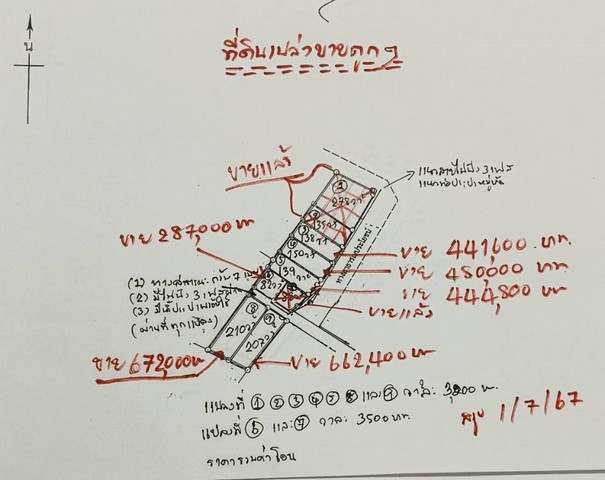 น
ที่ดินเปล่าขายถูกๆ
ขายแล้ว
278วา
135วา
138วา
150วา
139วา
82วา
ขาย 287,000 บาท
ขาย 441,600 บาท.
ขาย 480,000 บาท.
ขาย 444,800 บาท
ขายแล้ว
(1) ทางสาธารณะกว้าง 7 เมตร
(2) มีไฟฟ้า 3 เฟส
(3) มีน้ำประปา
(ผ่านที่ทุกแปลง)
ทางสาธารณประโยชน์
210วา
207วา
ขาย 672,000 บาท
ขาย 662,400 บาท
แปลงที่ ① ② ③ ④ ⑤ ⑧ และ ⑨ วาละ 3,200 บาท.
แปลงที่ ⑥ และ ⑦ วาละ 3500 บาท.
1/7/67
ราคารวมค่าโอน